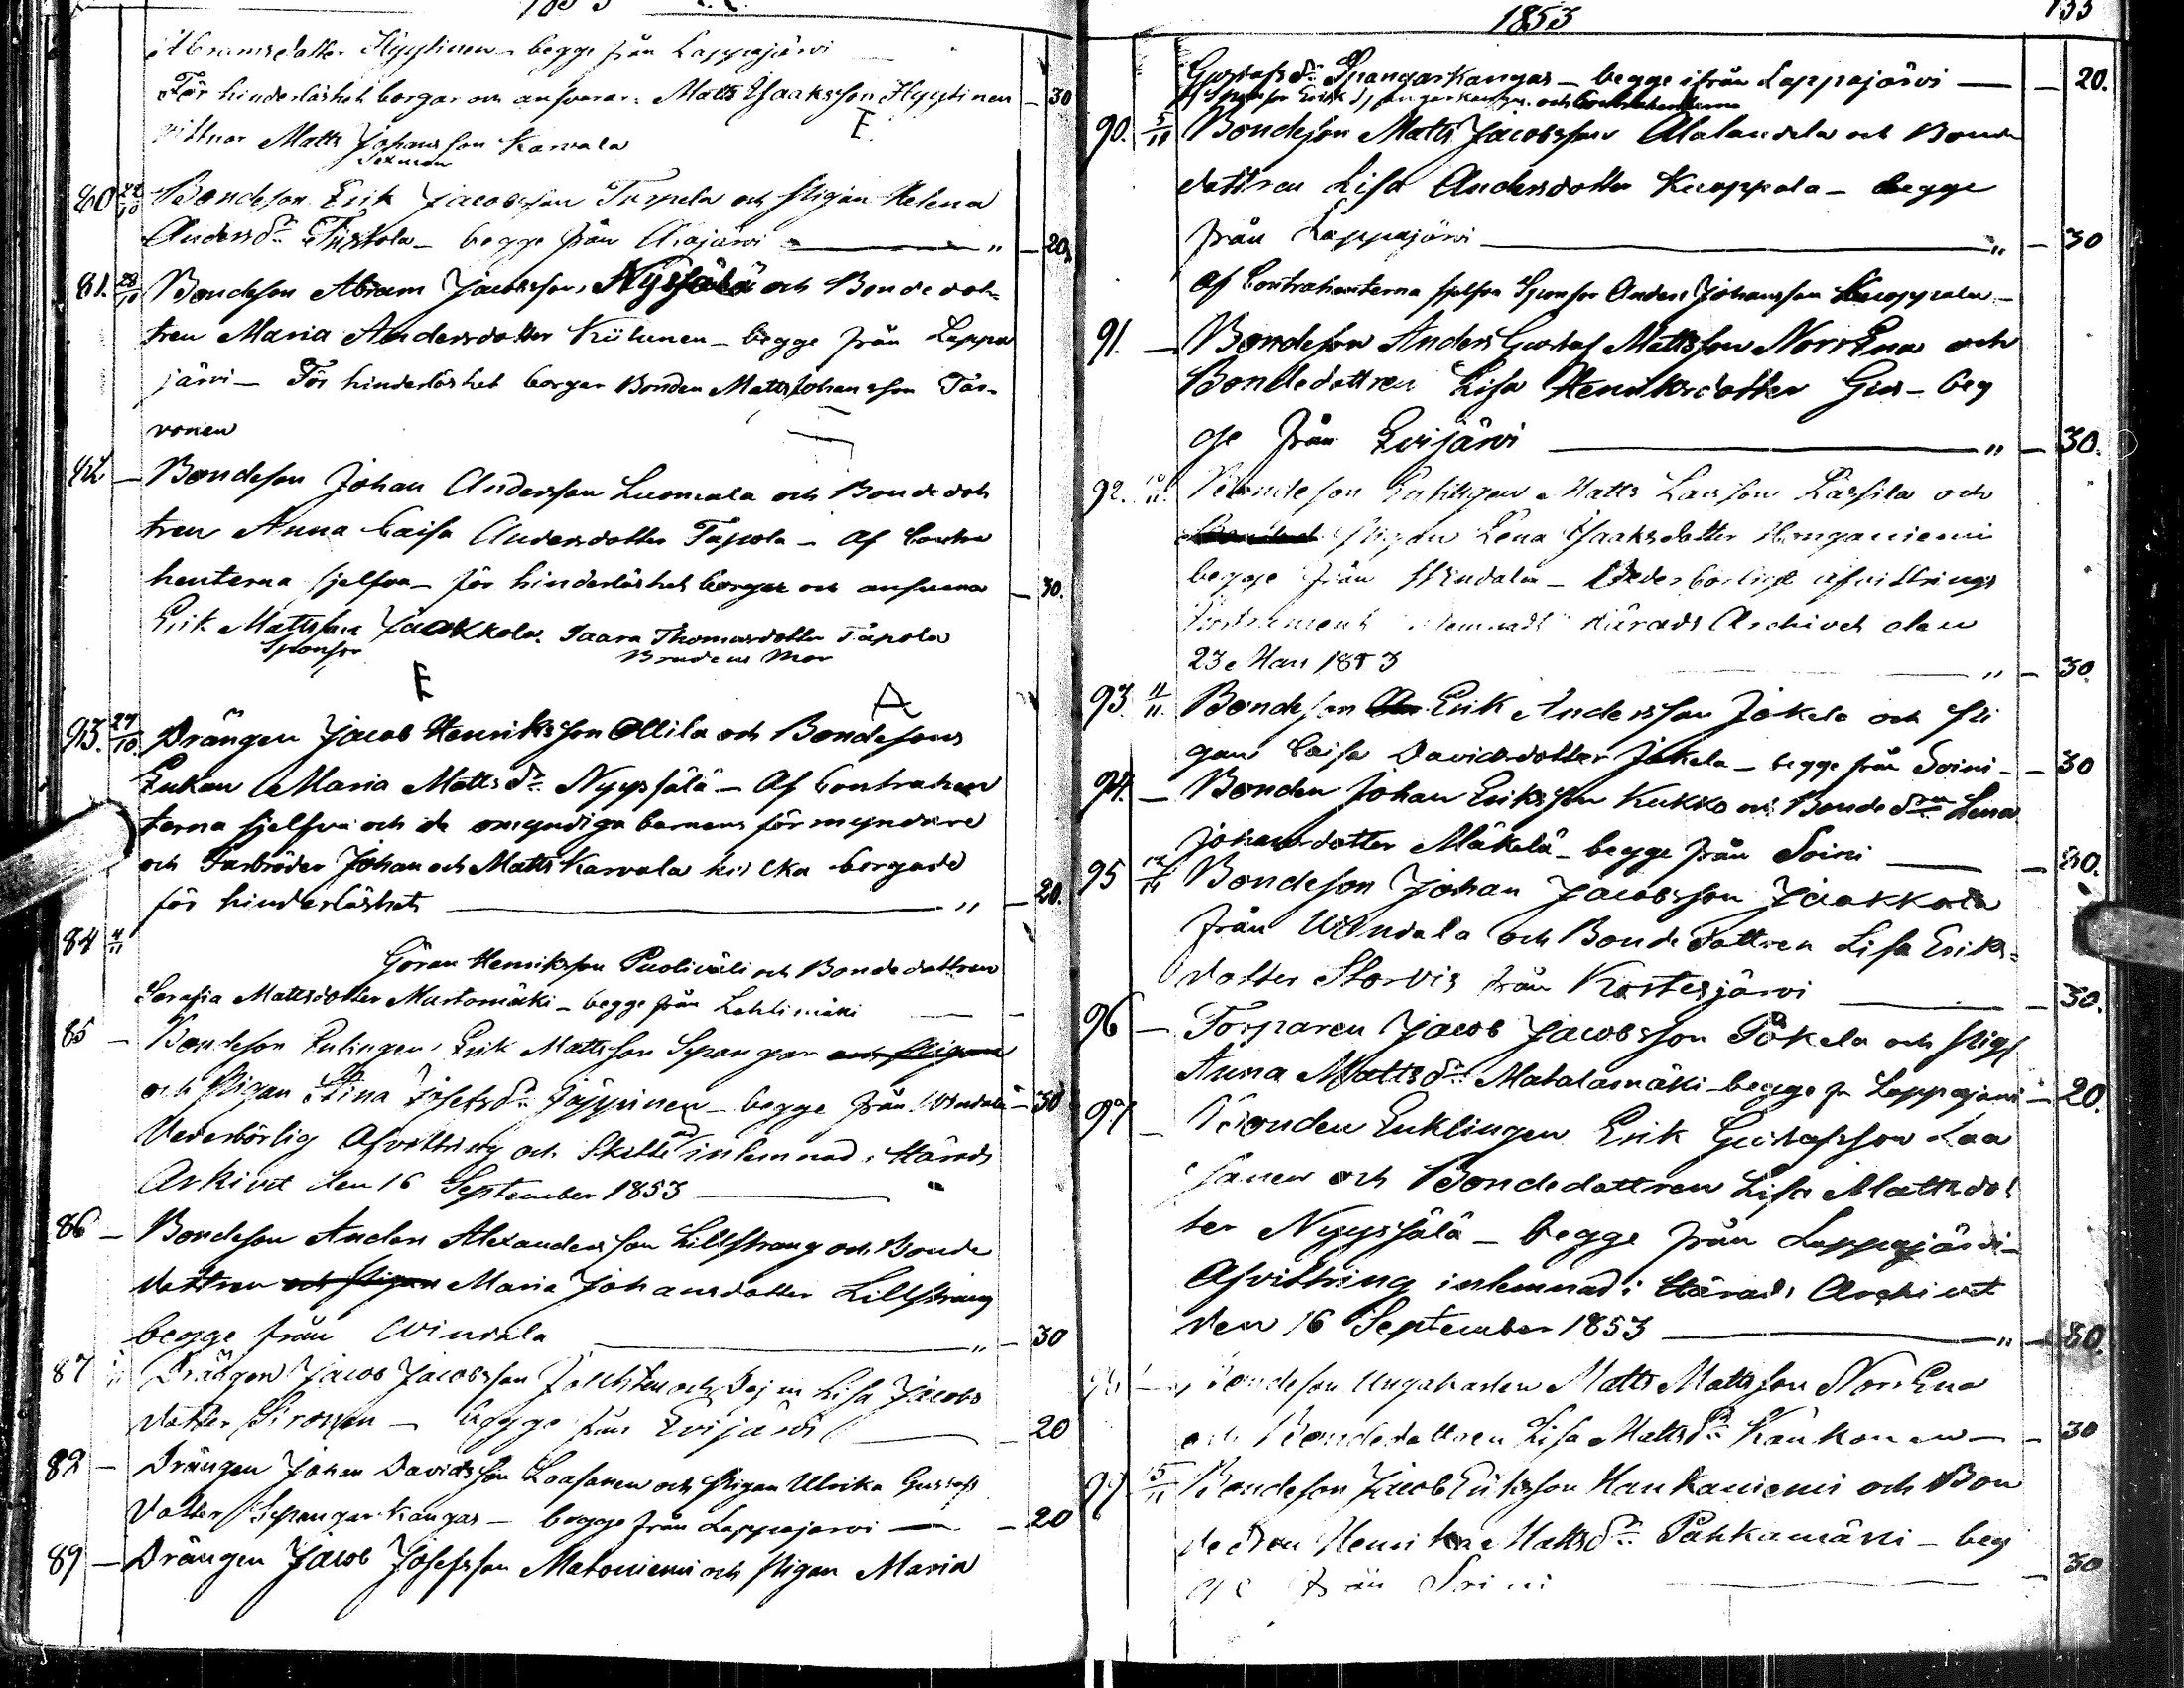 1853
Abramsdotter Hyytinen - begge från Lappajärvi
För hinderlöshet borgar och ansvarar Matts Isaaksson Hyytinen - 30
vittnar Matts Johansson Karvala E
Sexman
80 22/10 Bondeson Erik Jacobsson Turpela och pigan Helena
Anders dr: Tuskola - begge från Alajärvi " - 20
81. 28/10 Bondeson Abram Jacobsson Nyssälä och Bondedot-
tren Maria Andersdotter Kiilunen - begge från Lappa
järvi - För hinderlöshet borgar Bonden Matts Johansson Tar-
vonen
82 - Bondeson Johan Andersson Luomala och Bondedot
tren Anna Caisa Andersdotter Tapola - Af Contra
henterna sjelfva - för hinderlöshet borgar och ansvara - 30.
Erik Mattsson Jaakkola. Saara Thomasdotter Tapola
Sponsor Brudens Mor
E A
93. 27/10. Drängen Jacob Henriksson Ollila och Bondesons
Enkan Maria Matts dr: Nyyssälä - Af Contrahen
terna sjelfva och de omyndiga barnens förmyndare
och Farbröder Johan och Matts Karvala hvilka borgade
för hinderlöshet " - 20.
84 4/11
Göran Henriksson Puoliväli och Bondedottren
Serafia Mattsdotter Mustomäki - begge från Lehtimäki
85 - Bondeson Enklingen Erik Mattsson Spangar
och Pigan Stina Josefs dr: Jäppinen - begge från Windala - 30
Vederbörlig Afvittring och Skifte inlemnad i Härads
Arkivet den 16 September 1853
86 - Bondeson Anders Alexandersson Lillstrang och Bonde
dottren och pigan Maria Johansdotter Lillstrang
begge från Windala " - 30
87 Drängen Jacob Jacobsson och Pigan Lisa Jacobs
dotter Sironen - begge från Evijärvi 20
82 - Drängen Johan Davidsson Laasanen och Pigan Ulrika Gustafs
dotter Spangarkangas - begge från Lappajärvi - 20
89 - Drängen Jacob Josefsson Matoniemi och pigan Maria
1853 133
Gustafs dr: Spangarkangas - begge ifrån Lappajärvi - 20.
Af Sponsor Erik Spangarkangas och Contrahenterna
90. 5/11 Bondeson Matts Jacobsson Alatandela och Bonde
dottren Lisa Andersdotter Kuoppala - begge
från Lappajärvi " - 30
Af Contrahenterna sjelfva Sponsor Anders Johansson Kuoppala -
91. - Bondeson Anders Gustaf Mattsson NorrEna och
Bondedottren Lisa Henriksdotter Gus - beg
ge från Evijärvi " - 30.
92. 10/11. Bondeson Enklingen Matts Larsson Lassila och
Pigan Lena Isaksdotter Hongoniemi
begge från Windala - Vederbörligt afvittrings
Instrument inlemnadt i Härads Archivet den
23 Mars 1853 " - 30
93. 11/11 Bondeson Erik Andersson Jokela och Pi
gan Caisa Davidsdotter Jokela - begge från Soini - - 30
94. - Bonden Johan Eriksson Kukko och Bonde dtrn Lena
Johansdotter Mäkelä - begge från Soini - 30.
95 12/11 Bondeson Johan Jacobsson Jaakkola
från Windala och Bondedottren Lisa Eriks-
dotter Storvis från Kortesjärvi - 30.
96 - Torparen Jacob Jacobsson Pökela och pig
Anna Matts dr: Matalamäki - begge fr Lappajärvi - 20.
97 - Bonden Enklingen Erik Gustafsson Laa
sanen och Bondedottren Lisa Mattsdot
ter Nyyssälä - begge från Lappajärvi -
Afvittring inlemnad i Härads Archivet
den 16 September 1853 " - 30.
98 - Bondeson Ungakarlen Matts Mattsson NorrEna
och Bondedottren Lisa Matts dr: Kaukonen - - 30
99 15/11 Bondeson Jacob Eriksson Hankaniemi och Bon
dedtren Henrika Matts dr: Pahkamäki - beg
ge från Soini - 30